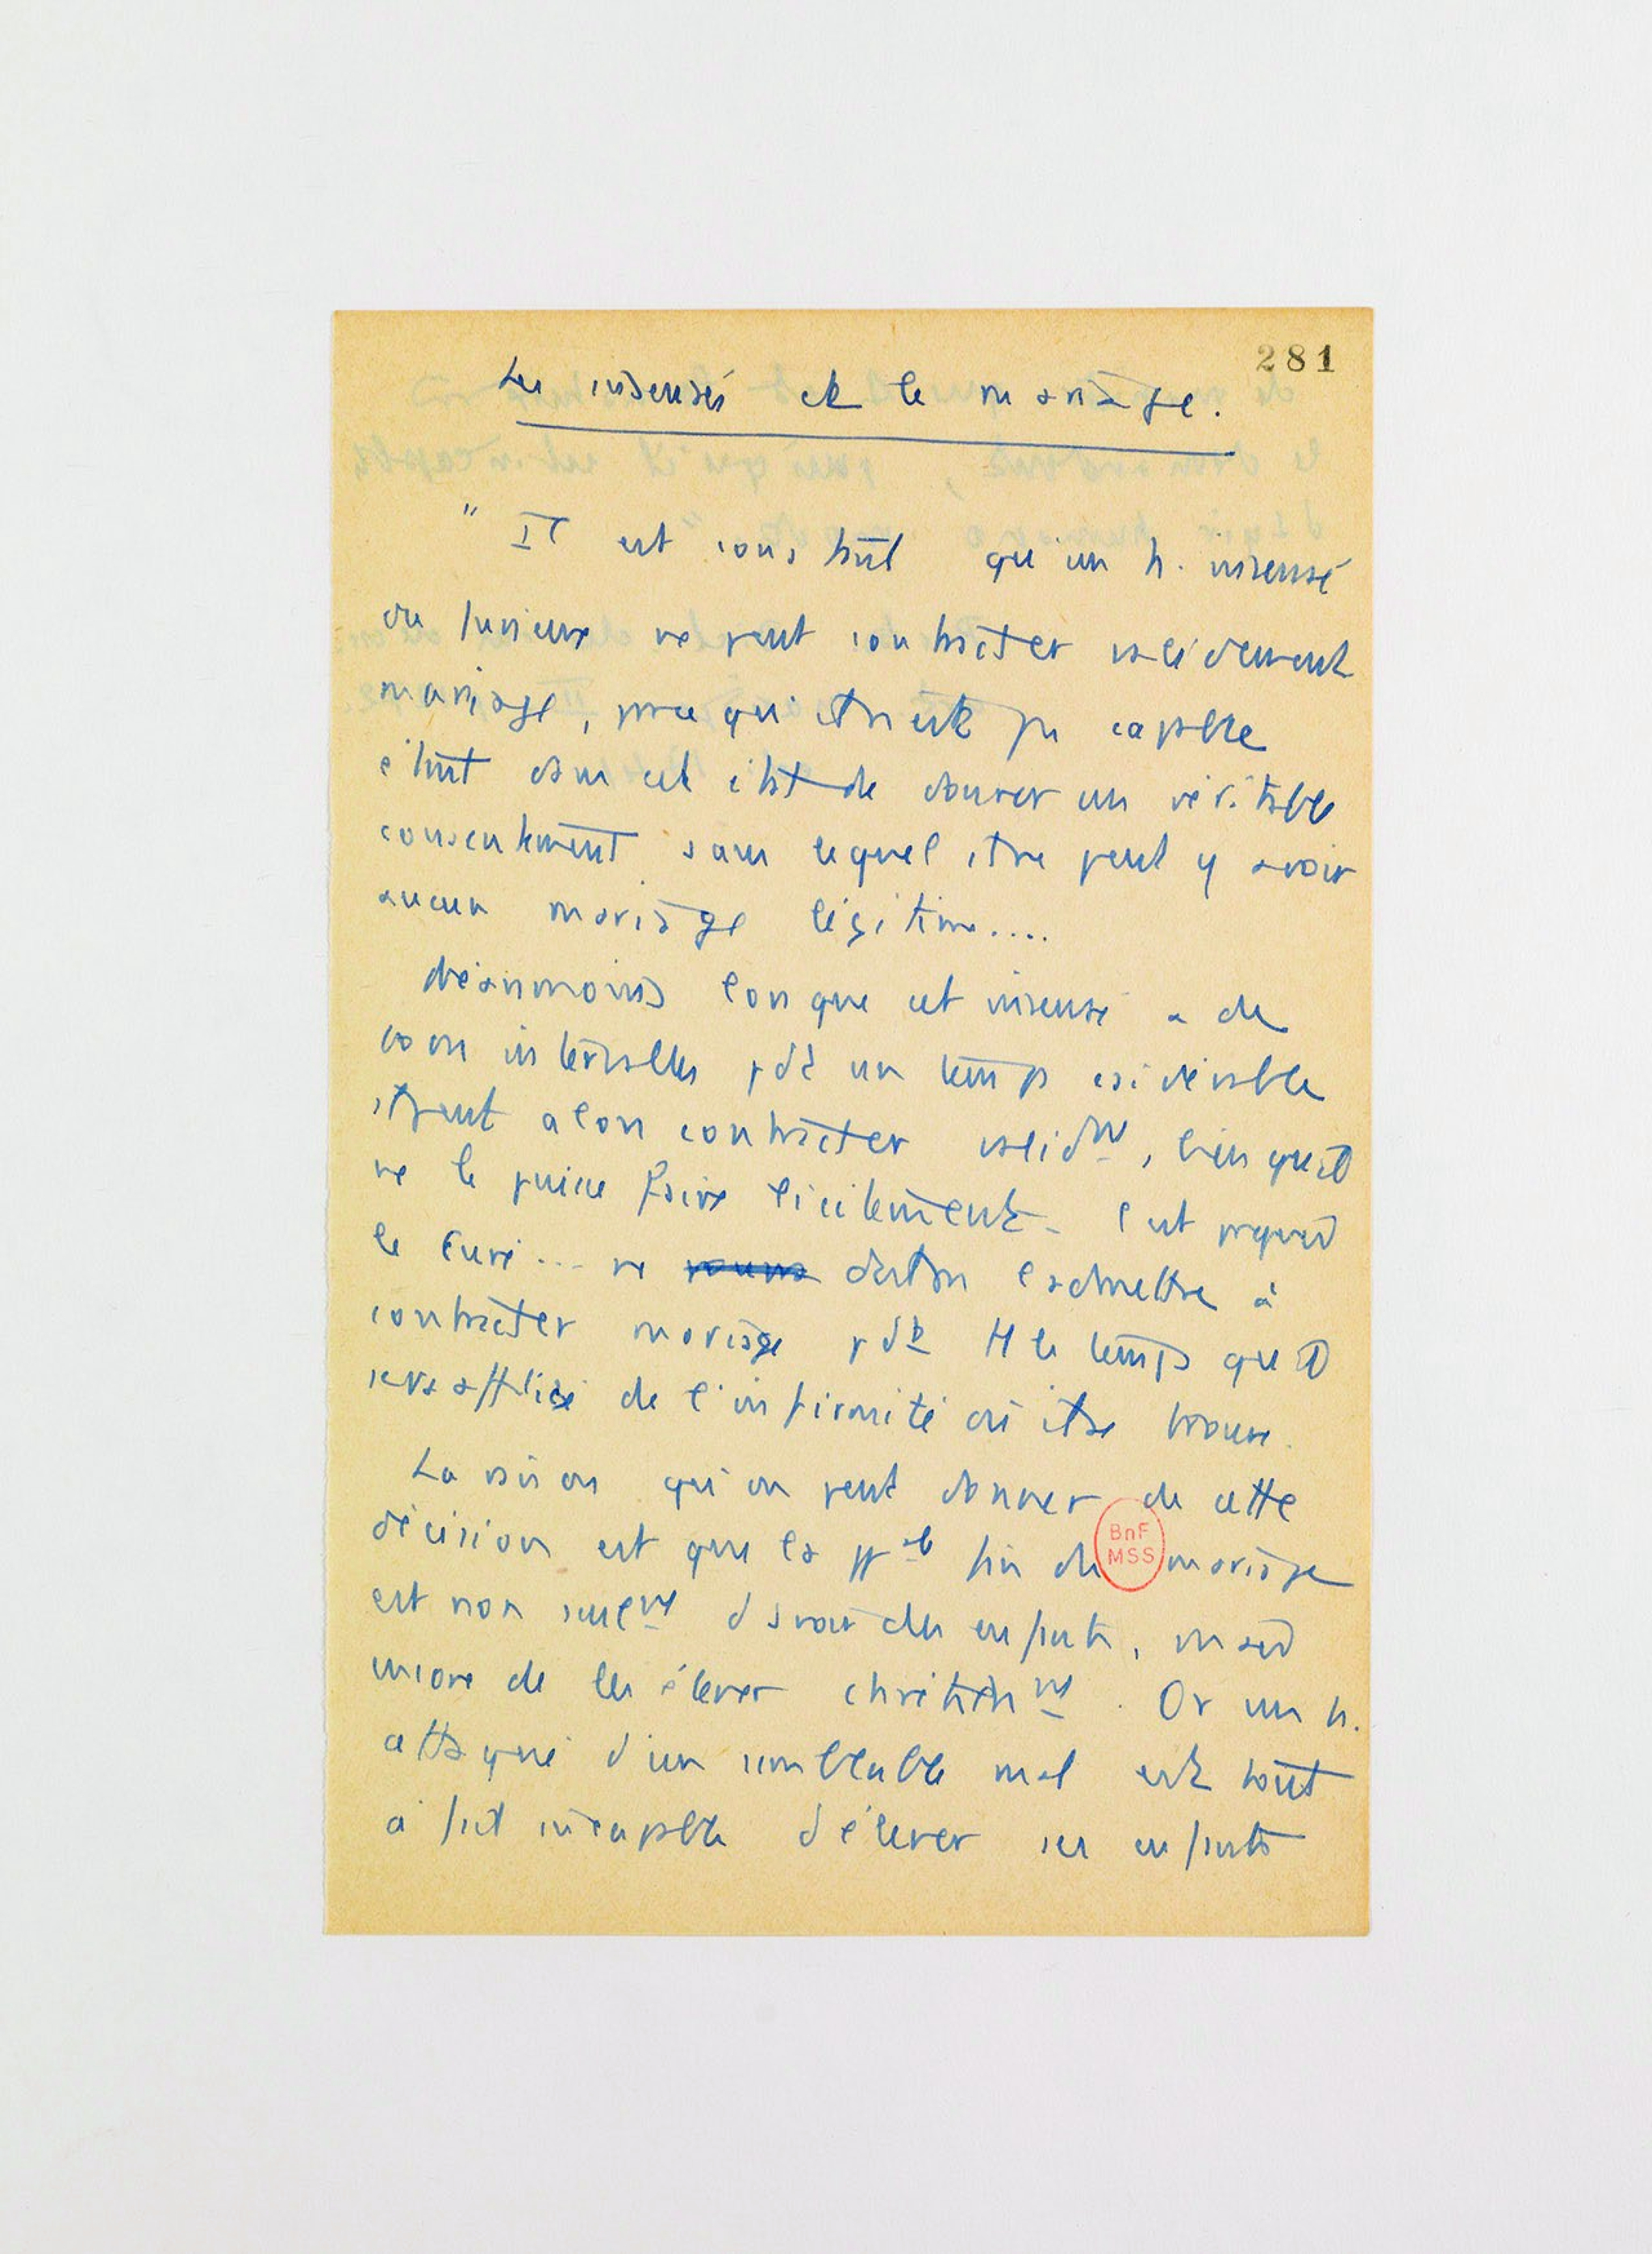 281
Les insensés et le mariage.
" Il est constant qu'un h. insensé
ou furieux ne peut contracter validement
mariage, parce qu'il n'est pas capable
étant dans cet état de donner un véritable
consentement sans lequel il ne peut y avoir
aucun mariage légitime....
Néanmoins lorsque cet insensé a de
bons intervalles pdt un temps csidérable
il peut alors contracter validmt, bien qu'il
ne le puisse faire licitement. C'est pquoi
le Curé... ne doit pas l'admettre à
contracter mariage pdt tt le temps qu'il
sera affligé de l'infirmité où il se trouve.
La raison qu'on peut donner de cette
décision est que la ppale fin du mariage
BnF
MSS
est non seulemt d'avoir des enfants, mais
encore de les élever chrétienmt. Or un h.
attaqué d'un semblable mal est tout
à fait incapable d'élever ses enfants